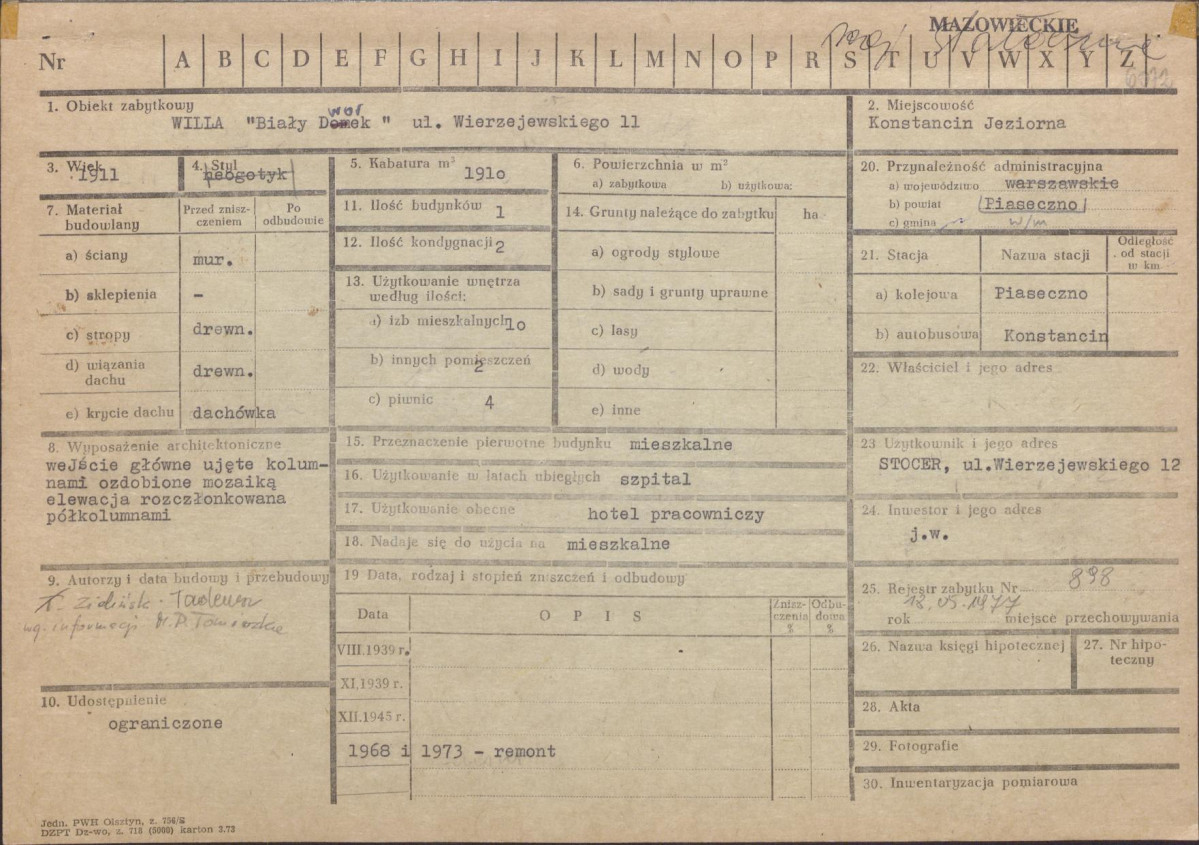 MAZOWIECKIE
Nr A B C D E F G H I J K L M N O P R S T U V W X Y Z
1. Obiekt zabytkowy
WILLA "Biały Dwór" ul. Wierzejewskiego 11
2. Miejscowość
Konstancin Jeziorna
3. Wiek
1911
4. Styl
neogotyk
5. Kabatura m³
1910
6. Powierzchnia w m²
a) zabytkowa b) użytkowa:
7. Materiał budowlany
Przed zniszczeniem
Po odbudowie
a) ściany mur.
b) sklepienia -
c) stropy drewn.
d) wiązania dachu drewn.
e) krycie dachu dachówka
11. Ilość budynków 1
12. Ilość kondygnacji 2
13. Użytkowanie wnętrza
według ilości:
a) izb mieszkalnych 10
b) innych pomieszczeń 2
c) piwnic 4
14. Grunty należące do zabytku ha
a) ogrody stylowe
b) sady i grunty uprawne
c) lasy
d) wody
e) inne
20. Przynależność administracyjna
a) województwo warszawskie
b) powiat Piaseczno
c) gmina w/m
21. Stacja
Nazwa stacji
Odległość
od stacji
w km
a) kolejowa Piaseczno
b) autobusowa Konstancin
22. Właściciel i jego adres
8. Wyposażenie architektoniczne
weJście główne ujęte kolum-
nami ozdobione mozaiką
elewacja rozczłonkowana
półkolumnami
15. Przeznaczenie pierwotne budynku mieszkalne
16. Użytkowanie w latach ubiegłych szpital
17. Użytkowanie obecne hotel pracowniczy
18. Nadaje się do użycia na mieszkalne
23 Użytkownik i jego adres
STOCER, ul.Wierzejewskiego 12
24. Inwestor i jego adres
j.w.
9. Autorzy i data budowy i przebudowy
Tadeusz
wg. informacji
10. Udostępnienie
ograniczone
19 Data, rodzaj i stopień zniszczeń i odbudowy
Data
O P I S
Znisz-
czenia
%
Odbu-
dowa
%
VIII.1939 r.
XI.1939 r.
XII.1945 r.
1968 i 1973 - remont
25. Rejestr zabytku Nr 898
18.05.1977
rok miejsce przechowywania
26. Nazwa księgi hipotecznej
27. Nr hipo-
teczny
28. Akta
29. Fotografie
30. Inwentaryzacja pomiarowa
Jedn. PWH Olsztyn, z. 756/E
DZPT Dz-wo, z. 718 (5000) karton 3.73